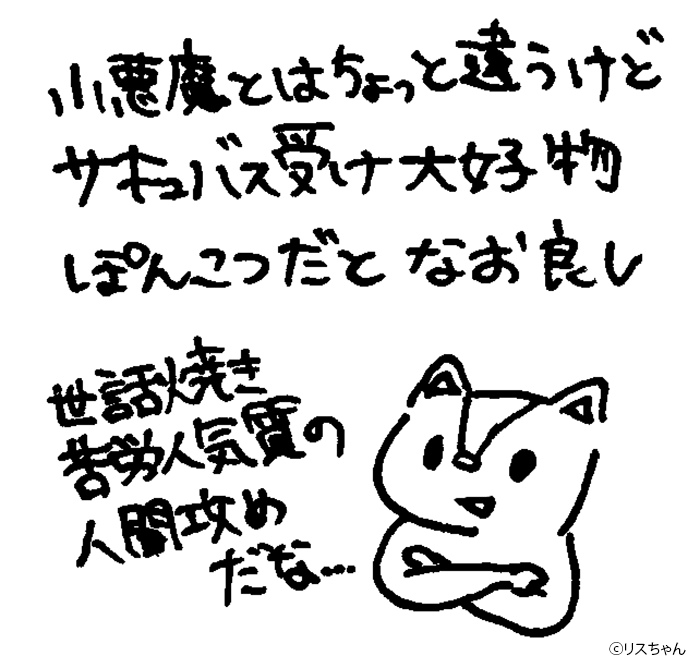 小悪魔とはちょっと違うけど
サキュバス受け大好物
ぽんこつだと なお良し
世話焼き
苦労人気質の
人間攻め
だな…
©リスちゃん